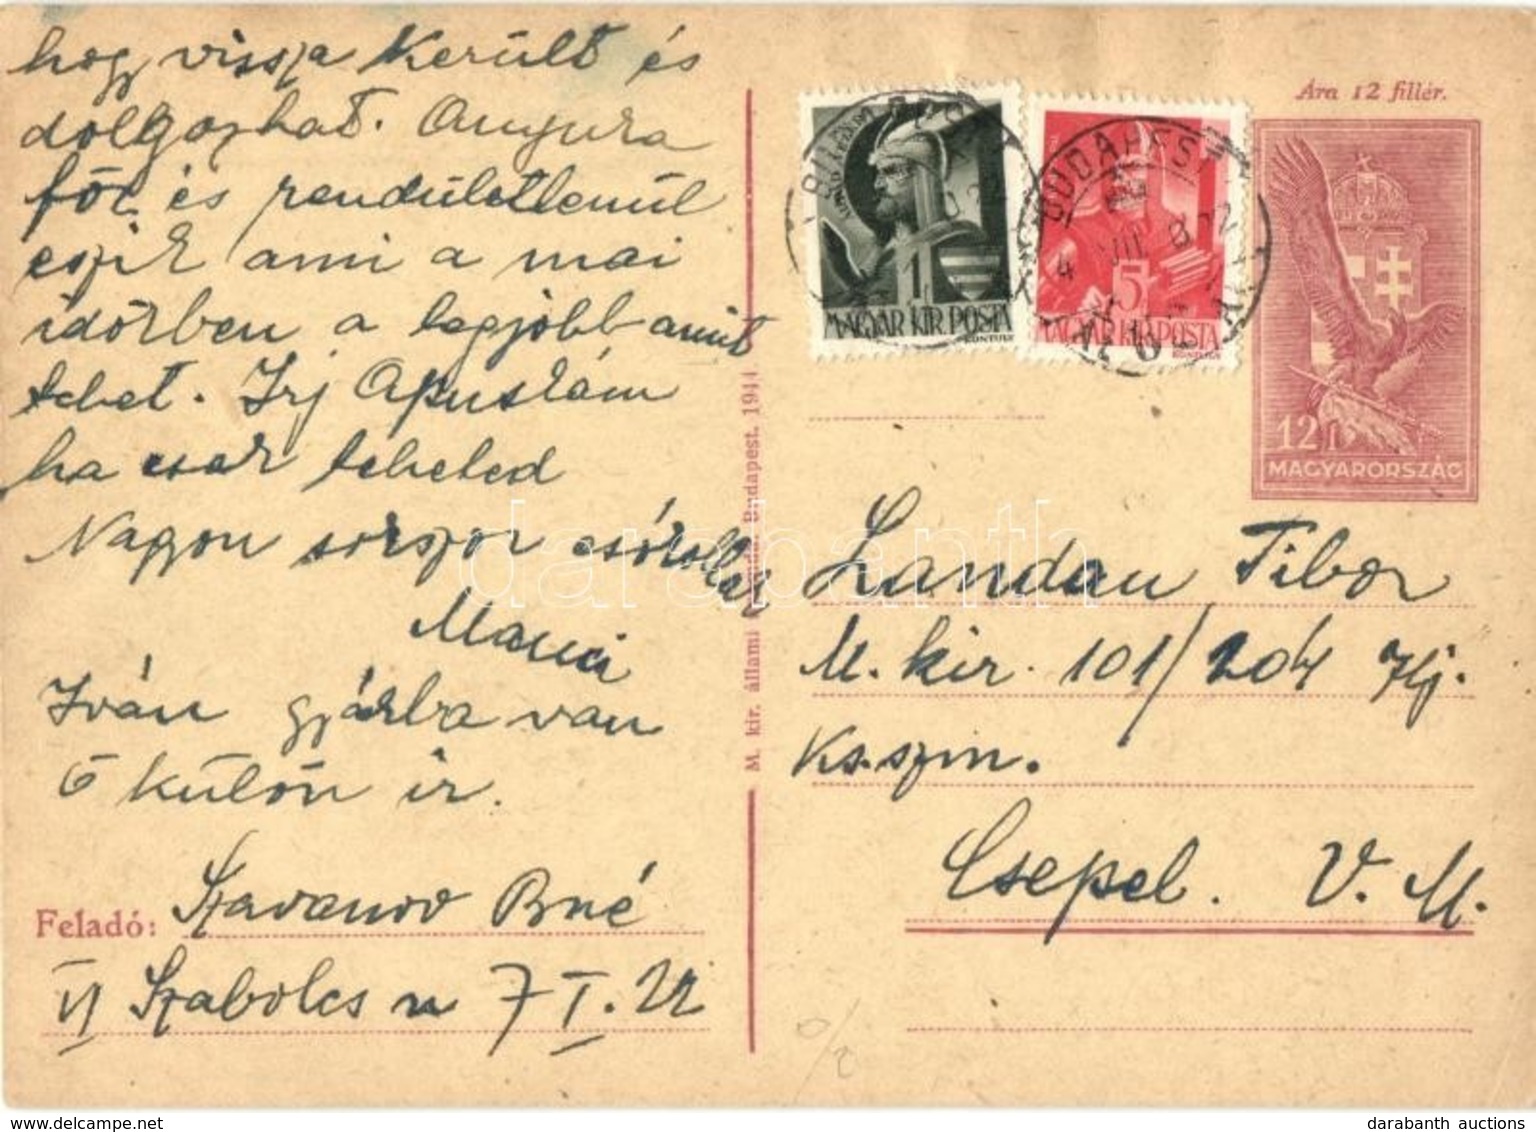 hogy vissza került és
dolgozhat. Anyura
főz és rendületlenül
eszik ami a mai
időrben a legjobb amit
tehet. Irj Apuskám
ha csak teheted
Nagyon sokszor csókollak
Manci
Iván gyárba van
ő külön ir.
Feladó: Szavanov Bné
VI Szabolcs u 7 I.
M. kir. állami nyomda. Budapest. 1944.
Ára 12 fillér.
1
MAGYAR KIR. POSTA
5
MAGYAR KIR. POSTA
BUDAPEST
12 f
MAGYARORSZÁG
Landau Tibor
M. kir. 101/204
Ks. szm.
Csepel. V. M.
darabanth
darabanth auctions